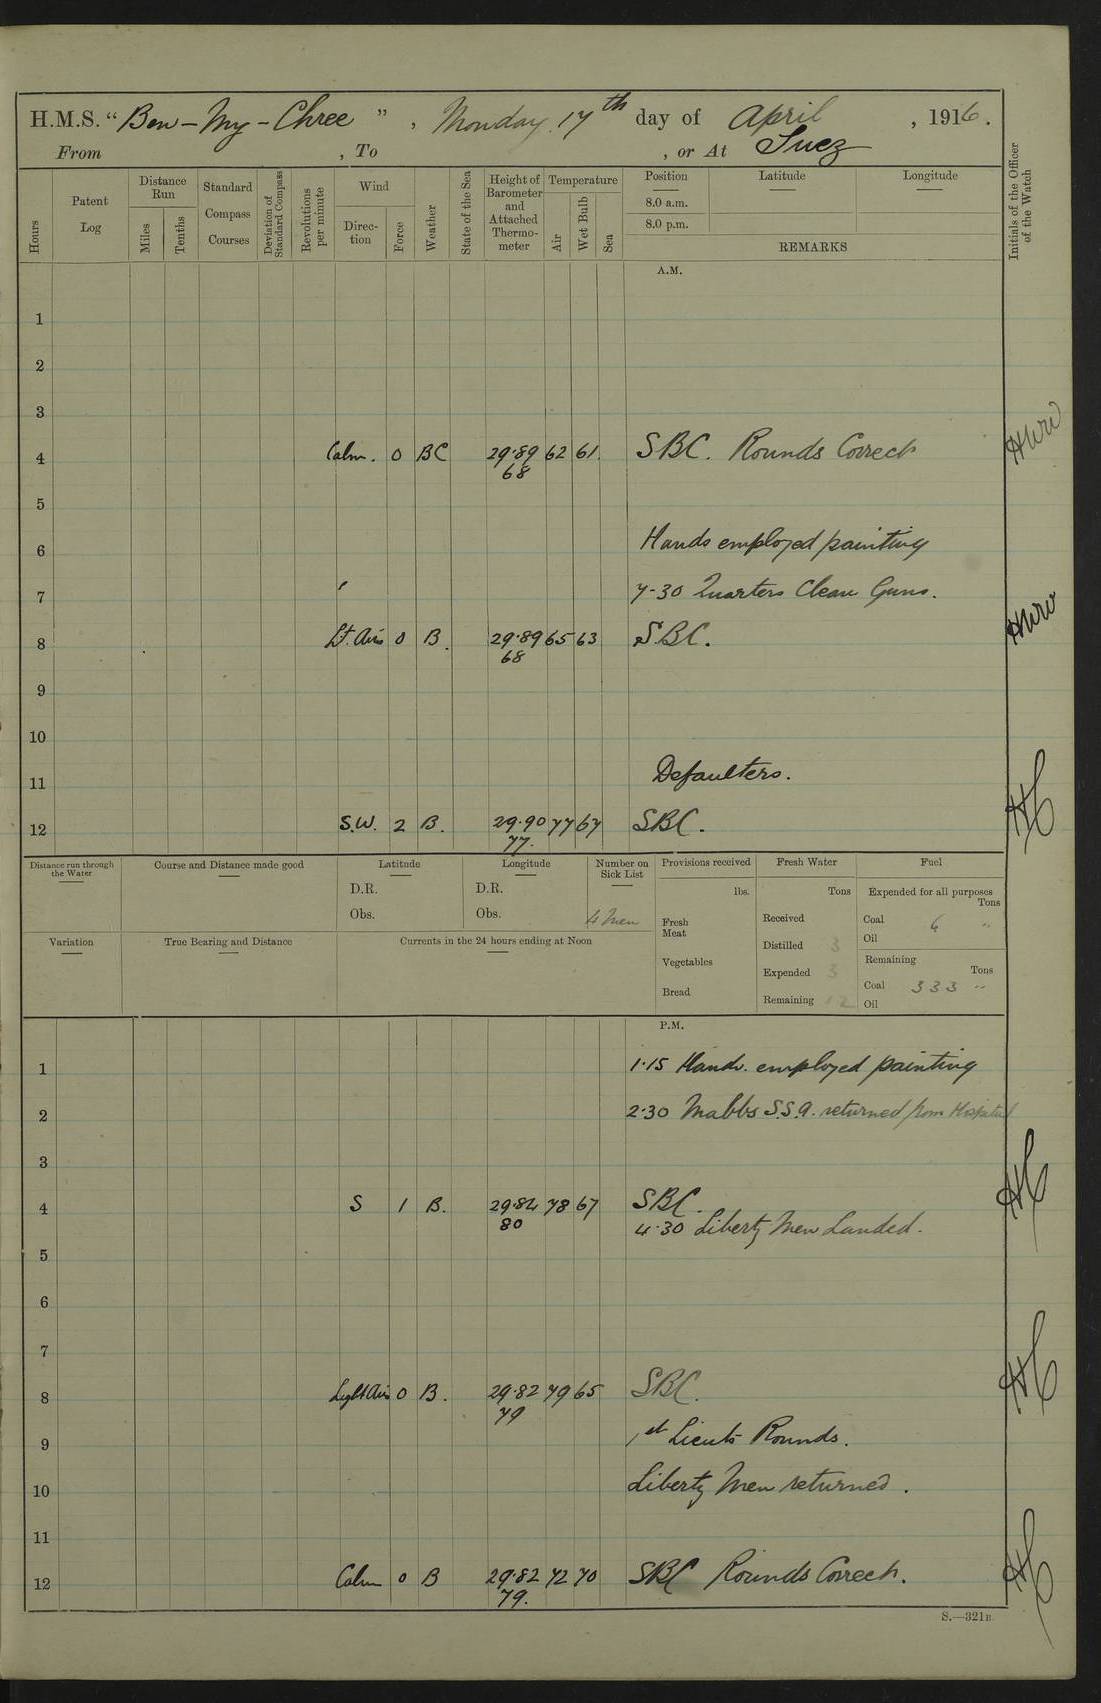 H.M.S. “ Ben-My-Chree ” , Monday 17th day of April , 1916.
From , To , or At Suez
Hours
Patent Log
Distance Run
Miles
Tenths
Standard Compass Courses
Deviation of Standard Compass
Revolutions per minute
Wind
Direction
Force
Weather
State of the Sea
Height of Barometer and Attached Thermometer
Temperature
Air
Wet Bulb
Sea
Position
8.0 a.m.
8.0 p.m.
Latitude
Longitude
REMARKS
Initials of the Officer of the Watch
A.M.
1
2
3
4 Calm. 0 BC 29.89 62 61. SBC. Rounds Correct
68
5
6 Hands employed painting
7 7-30 Quarters Clean Guns.
8 Lt. Airs 0 B. 29.89 65 63 SBC.
68
9
10
11 Defaulters.
12 S.W. 2 B. 29.90 77 67 SBC.
77.
Distance run through the Water
Course and Distance made good
Latitude
D.R.
Obs.
Longitude
D.R.
Obs.
Number on Sick List
4 Men
Provisions received
lbs.
Fresh Meat
Vegetables
Bread
Fresh Water
Tons
Received
Distilled 3
Expended 3
Remaining 12
Fuel
Expended for all purposes
Tons
Coal 6 "
Oil
Remaining
Tons
Coal 333 "
Oil
Variation
True Bearing and Distance
Currents in the 24 hours ending at Noon
P.M.
1 1.15 Hands. employed painting
2 2.30 Mabbs S.S.A. returned from Hospital
3
4 S 1 B. 29.84 78 67 SBC.
80 4.30 Liberty Men Landed.
5
6
7
8 Light Airs 0 B. 29.82 79 65 SBC.
79
9 1st Lieuts Rounds.
10 Liberty Men returned.
11
12 Calm 0 B 29.82 72 70 SBC Rounds Correct.
79.
S.—321B.